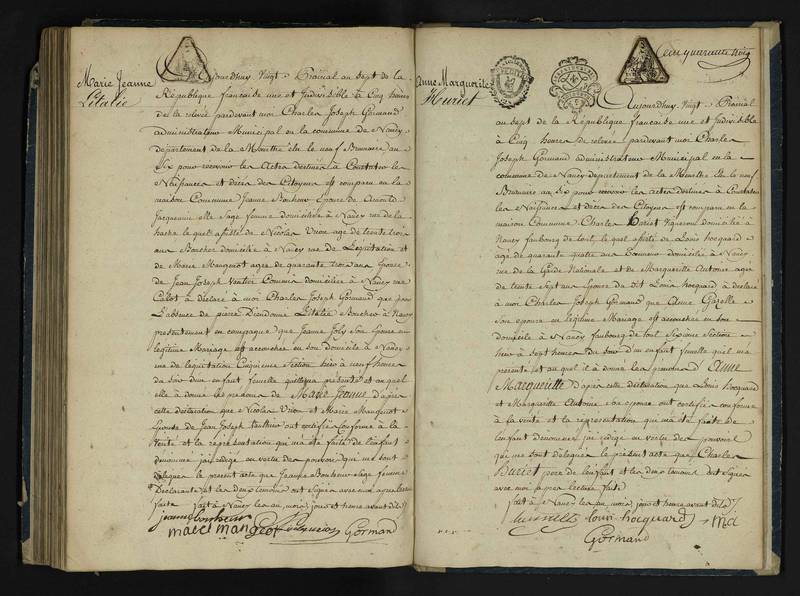 Marie Jeanne
Litalié
Aujourdhuy vingt Prairial an sept de la
République française une et Indivisible à Cinq heures
de la relevée pardevant moi Charles Joseph Gormand
administrateur Municipal en la commune de Nancy
departement de la Meurthe élu le neuf Brumaire an
Six pour recevoir les Actes destinés à Constater les
Naissances et décès des Citoyens est comparu en la
maison Commune Jeanne Bonheur Epouse de
Jacquemin elle Sage femme domiciliée à Nancy rue de la
hache laquelle assistée de Nicolas Vrion agé de trente trois
ans Boucher domicilié à Nancy rue de Lequitation et
de Marie Mangenot agée de quarante trois ans Epouse
de Jean Joseph domiciliée à Nancy rue
Calot à déclaré à moi Charles Joseph Gormand que pour
L'absence de pierre Dieudonné Litalié Boucher à Nancy
présentement en campagne, que Jeanne Joly Son Epouse en
légitime Mariage est accouchée en son Domicile à Nancy
rue de lequitation Cinquieme Section hier à neuf heures
du soir d'un enfant femelle quelle ma présenté et auquel
elle à donné les prénoms de Marie Jeanne d'après
cette déclaration que Nicolas Vrion et Marie Mangenot
Epouse de Jean Joseph ont certifiée Conforme à la
vérité et la représentation qui m'a été faite de l'enfant
denommé jai rédigé en vertu des pouvoirs qui me sont
délégués le présent acte que Jeanne Bonheur Sage femme
Déclarante et les deux temoins ont Signés avec moi après lecture
faite
fait à Nancy les an, mois, jours et heure avant dits
jeanne bonheur
marei mangeot Gormand
Cent quarante trois
Anne Marguerite
Huriet
Aujourdhuy vingt Prairial
an sept de la République française une et Indivisible
à Cinq heures de relevée pardevant moi Charles
Joseph Gormand administrateur Municipal en la
commune de Nancy departement de la Meurthe élu le neuf
Brumaire an six pour recevoir les actes destinés à Constater
les Naissances et décès des Citoyens est comparu en la
maison Commune Charles Huriet Vigneron domicilié à
Nancy faubourg de toul, le quel assisté de Louis hocquard
agé de quarante quatre ans domicilié à Nancy
rue de la Garde Nationale et de Marguerite Antoine agée
de trente Sept ans Epouse du dit Louis hocquard à déclaré
à moi Charles Joseph Gormand que Anne Gazelle
Son épouse en légitime Mariage est accouchée en son
domicile à Nancy faubourg de toul Sixième Section
hier à Sept heures du Soir d'un enfant femelle quil ma
présenté et au quel il à donné les prénoms d'Anne
Margueritte D'après cette déclaration que Louis hocquard
et Margueritte Antoine Sa épouse ont certifiée conforme
à la vérité et la représentation qui m'a été faite de
lenfant denommé jai rédigé en vertu des pouvoirs
qui me sont délégués le présent acte que Charles
Huriet pere de lenfant et les deux temoins ont Signés
avec moi après lecture faite
fait à Nancy les an, mois, jours et heure avant dits
louis hocquard
Gormand